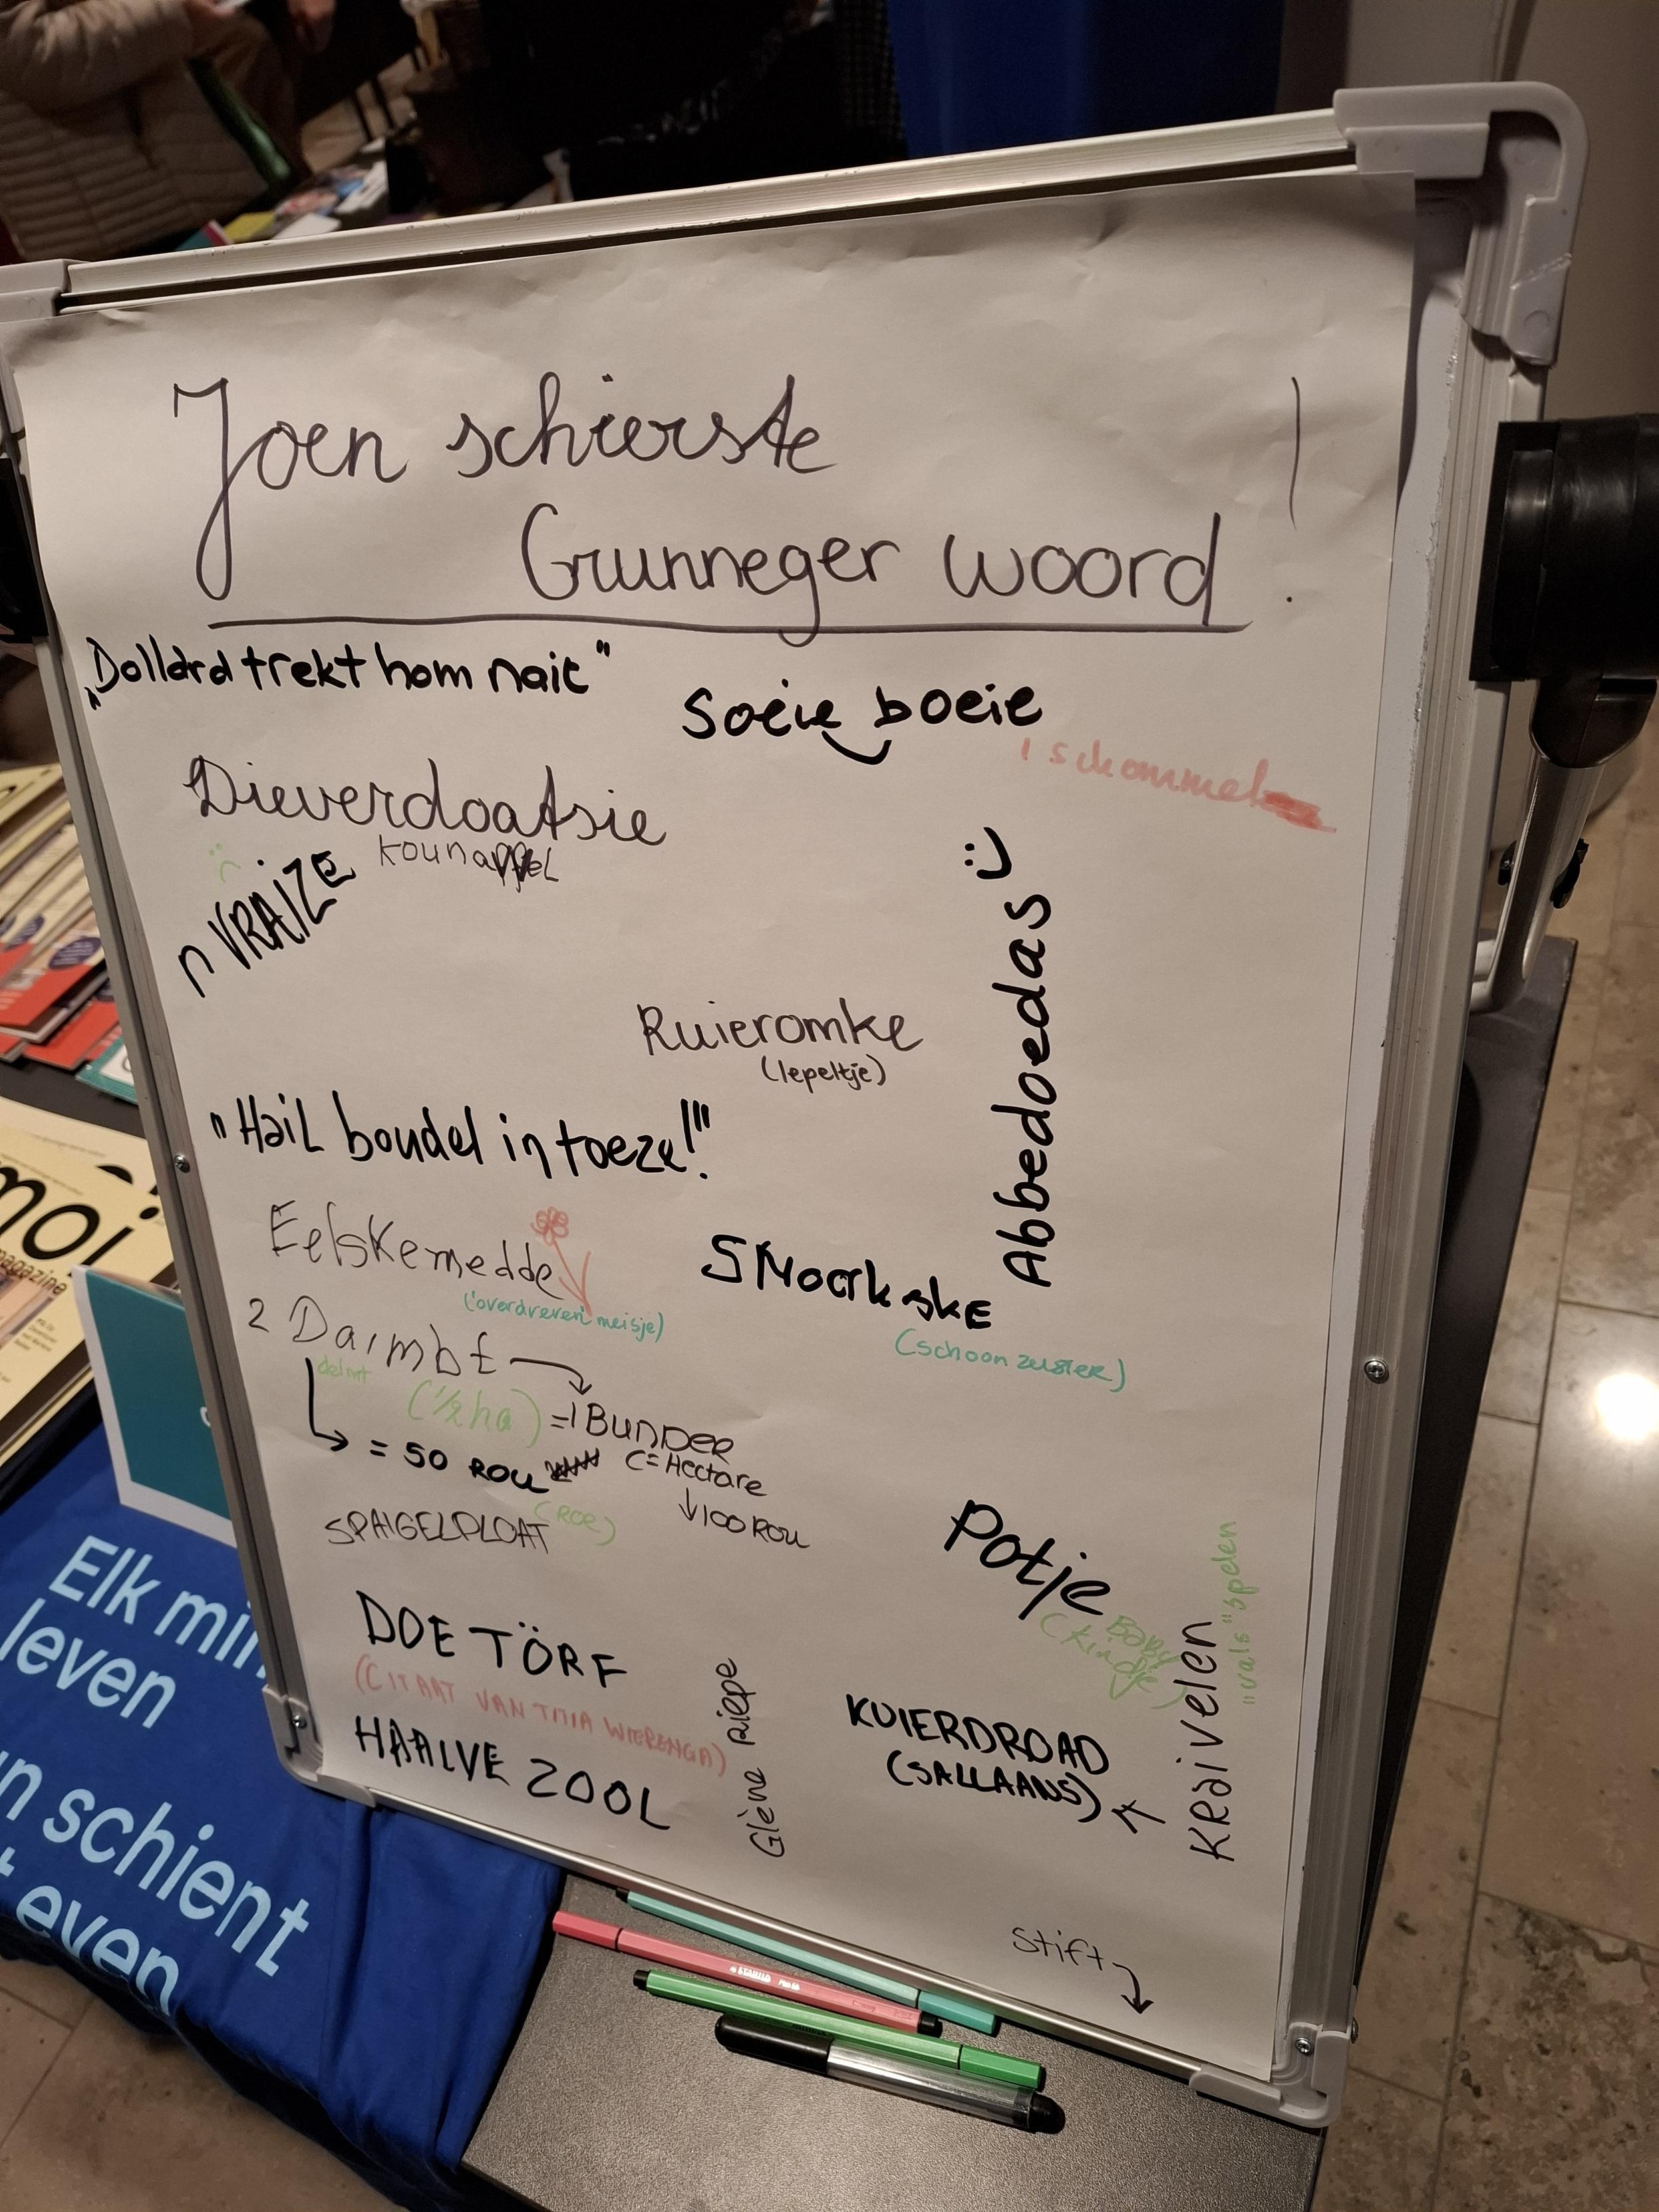 Joen schierste
Grunneger woord!
"Dollard trekt hom nait"
Soeie boeie
schommel
Dieverdoatsie
kounappel
n VRAIZE
Abbedoedas
Ruieromke
(lepeltje)
"Hail boudel in toeze!"
Eelskemedde
('overdreven' meisje)
SNoarkske
(schoonzuster)
2 Daimbt
deimt
(1/2 ha) = 1 BUNDER
(= Hectare
↓ 100 ROU
= 50 ROU
(ROE)
SPAIGELPLOAT
Potje
(Baby
kindje)
DOE TÖRF
(CITAAT VAN TMIA WIERENGA)
HAALVE ZOOL
Glène piepe
KUIERDROAD
(SALLAANS)
KRaivelen
"vals" spelen
Stift
moi
magazine
Elk mi
leven
un schient
t even
STABILO